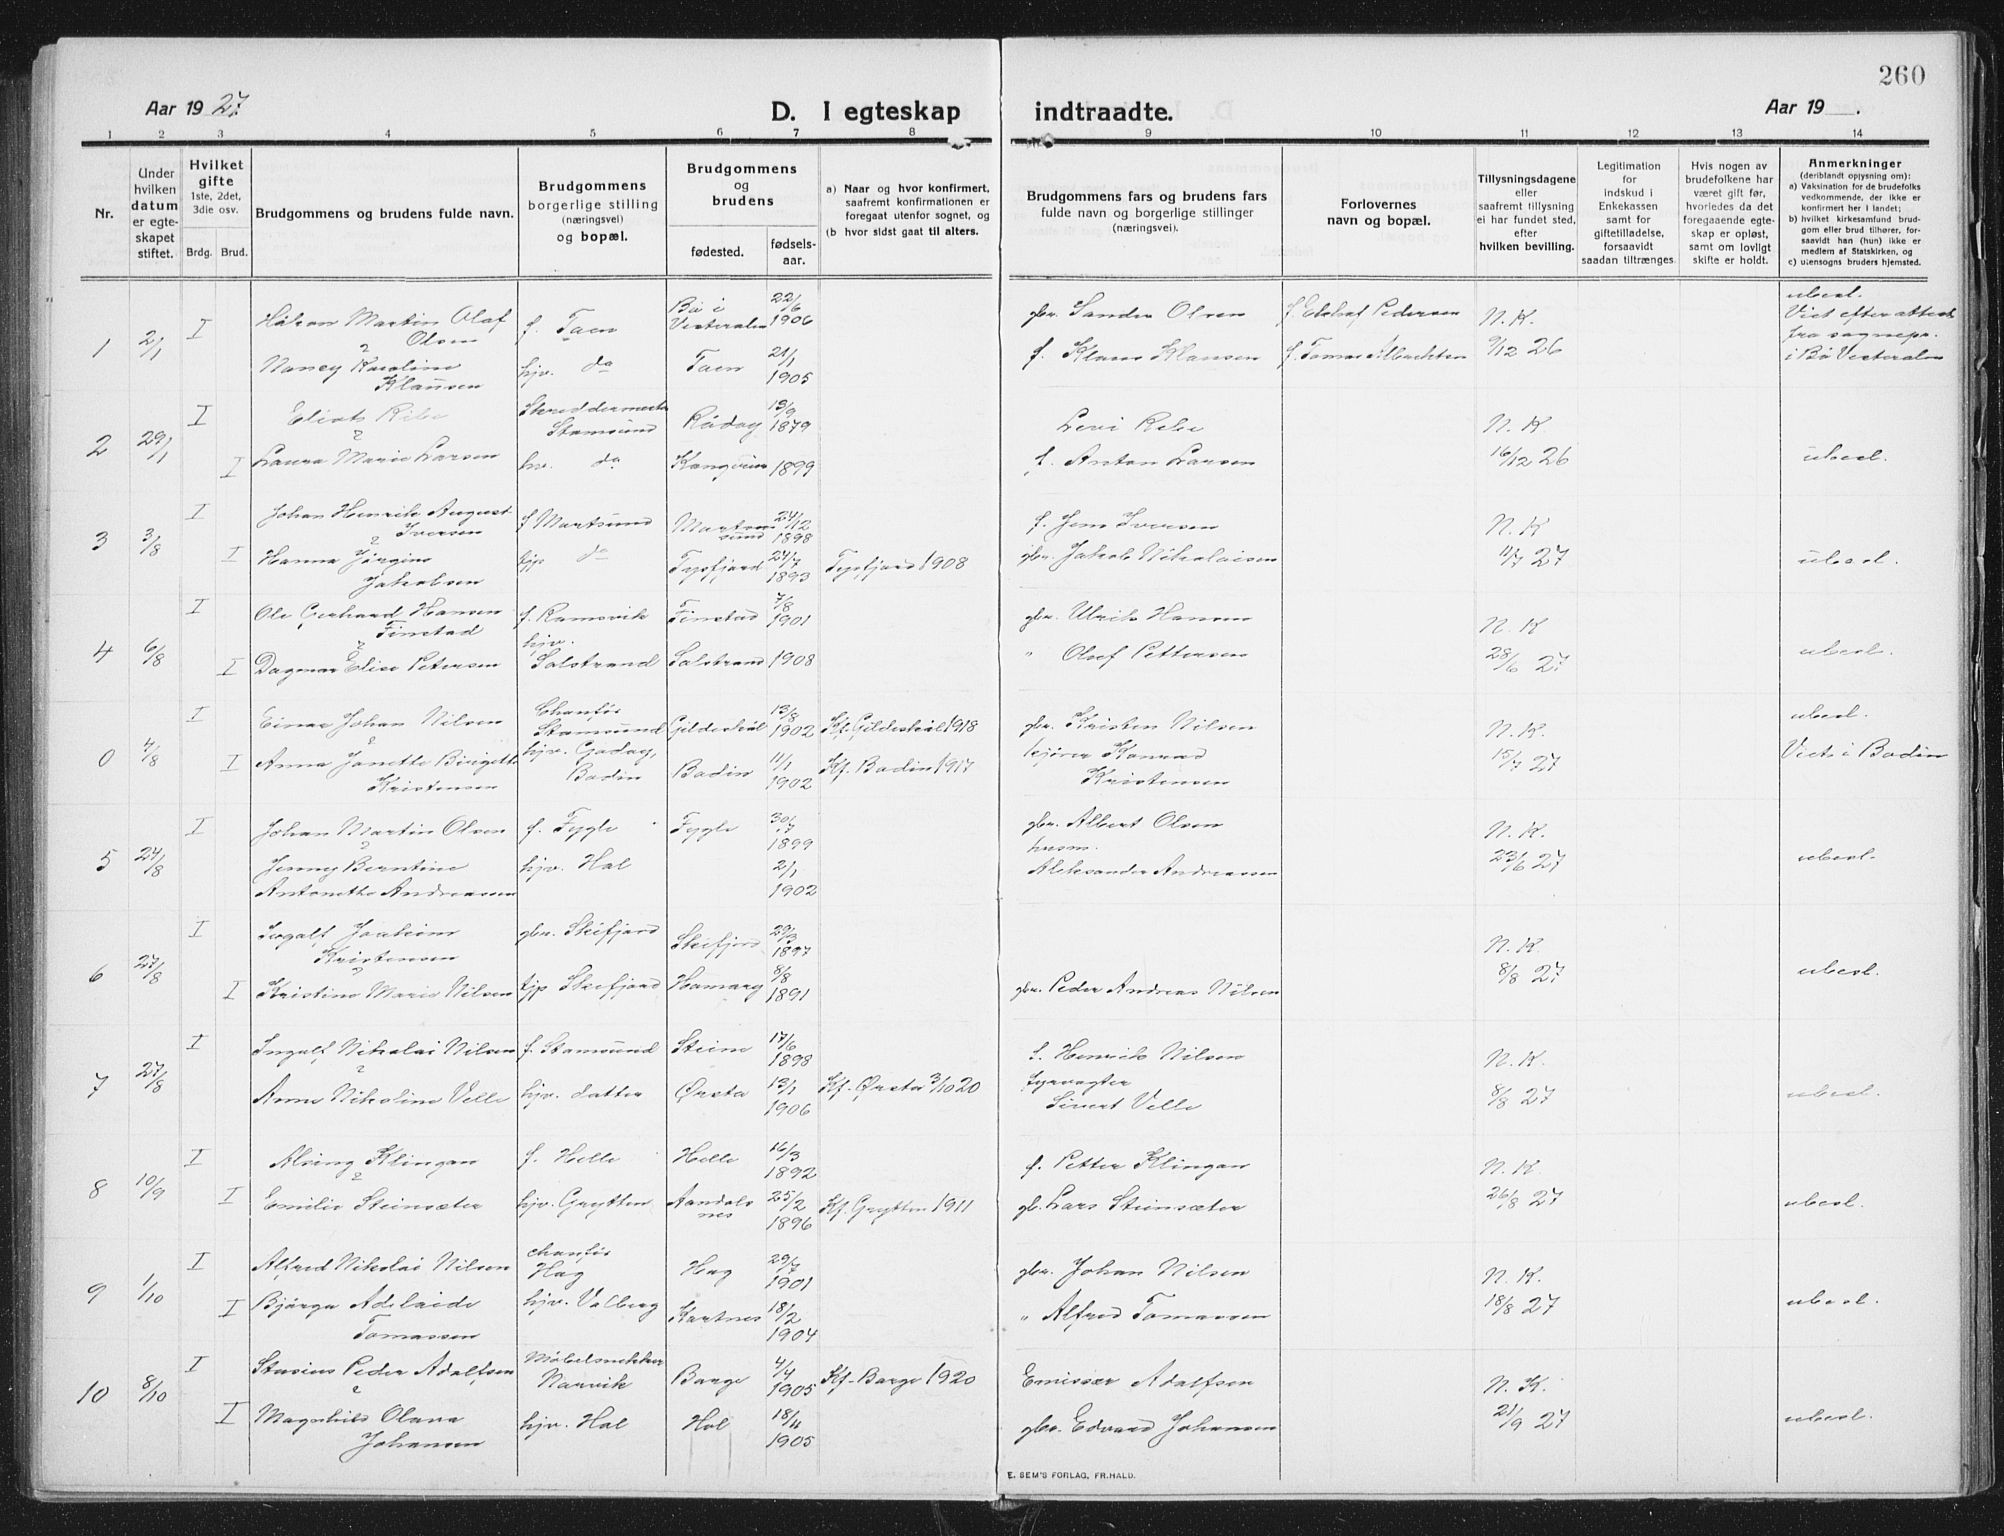 260
Aar 1927
D. I egteskap
indtraadte.
Aar 19
1 2 3 4 5 6 7 8 9 10 11 12 13 14
Nr.
Under hvilken datum er egteskapet stiftet.
Hvilket gifte
1ste, 2det, 3die osv.
Brdg. Brud.
Brudgommens og brudens fulde navn.
Brudgommens borgerlige stilling (næringsvei) og bopæl.
Brudgommens og brudens
fødested.
fødselsaar.
a) Naar og hvor konfirmert, saafremt konfirmationen er foregaat utenfor sognet, og
(b hvor sidst gaat til alters.
Brudgommens fars og brudens fars fulde navn og borgerlige stillinger (næringsvei).
Forlovernes navn og bopæl.
Tillysningsdagene eller saafremt tillysning ei har fundet sted, efter hvilken bevilling.
Legitimation for indskud i Enkekassen samt for giftetilladelse, forsaavidt saadan tiltrænges.
Hvis nogen av brudefolkene har været gift før, hvorledes da det foregaaende egteskap er opløst, samt om lovligt skifte er holdt.
Anmerkninger
(deriblandt opysning om):
a) Vaksination for de brudefolks vedkommende, der ikke er konfirmert her i landet;
b) hvilket kirkesamfund brudgom eller brud tilhører, forsaavidt han (hun) ikke er medlem af Statskirken, og
c) utensogns bruders hjemsted.
1 2/1 I Håkon Martin Olaf Olsen f. Taen Bö i Vesteralen 22/6 1906 gbr. Sander Olsen f. Pedersen N. K. ubesl.
Nancy Karoline Klausen hjv. do Taen 21/1 1905 f. Klaus Klausen 9/12 26 Viet efter attest fra sognepr. i Bö Vesteralen
2 29/1 I Stamsund 13/9 1879 Levi N. K
I Laura Marie Larsen hv. do 1899 f. Anton Larsen 16/12 26 ubesl.
3 3/8 I Johan Henrik August Iversen f Mortsund Mortsund 24/12 1898 f. Jens Iversen N. K
I Hanna Jørgine Jakobsen tjp do Tysfjord 24/7 1893 Tysfjord 1908 gbr. Jakob Nikolaisen 11/7 27 ubesl.
4 6/8 I Ole Gerhard Hansen Finstad f. Ramsvik Finstad 7/8 1901 gbr. Ulrik Hansen N. K
I Dagmar Elise Petersen hjv. Solstrand Solstrand 1908 " Olaf Pettersen 28/6 27 ubesl.
0 4/8 I Einar Johan Nilsen Chauför Stamsund Gildeskål 13/8 1902 Kf. Gildeskål 1918 gbr. Kristen Nilsen N. K. ubesl.
I Anna Janette Birgitte Kristensen hjv. Bodin Bodin 11/1 1902 Kf. Bodin 1917 kjører Konrad Kristensen 15/7 27 Viet i Bodin
5 27/8 I Johan Martin Olsen f. Fygle Fygle 30/7 1899 gbr. Albert Olsen N. K.
Jenny Berntine Antonette Andreassen hjv. Hol 2/1 1902 husm. Aleksander Andreassen 23/6 27 ubesl.
6 27/8 I Joakim Kristensen gbr. Skifjord Skifjord 29/3 1897 N. K.
I Kristine Marie Nilsen tjp Skifjord Hamarøy 8/8 1891 gbr. Peder Andreas Nilsen 8/8 27 ubesl.
7 27/8 I Ingolf Nikolai Nilsen f. Stamsund Steine 17/6 1898 f. Henrik Nilsen N. K.
Anna Nikoline Velle hjv. datter Ørsta 13/1 1906 Kf. Ørsta 3/10 20 fyrvogter Sivert Velle 8/8 27 ubesl.
8 10/9 I Alsing Klingan f. Helle Helle 16/3 1892 f. Petter Klingan N. K.
I Emilie Steinsæter hjv. Grytten Aandalsnes 25/2 1896 Kf. Grytten 1911 gb. Lars Steinsæter 26/8 27 ubesl.
9 1/10 I Alfred Nikolai Nilsen chauför Hag Hag 29/7 1901 gbr. Johan Nilsen N. K.
I Bjørga Adelaide Tomassen hjv. Valberg Kartnes 18/2 1904 " Alfred Tomassen 18/8 27 ubesl.
10 8/10 I Peder Adolfsen Möbelsnekker Narvik Borge 4/4 1905 Kf. Borge 1920 Emissær Adolfsen N. K.
I Magnhild Olava Johansen hjv. Hol Hol 18/4 1905 gbr. Edvard Johansen 21/9 27 ubesl.
E. SEM'S FORLAG, FR.HALD.